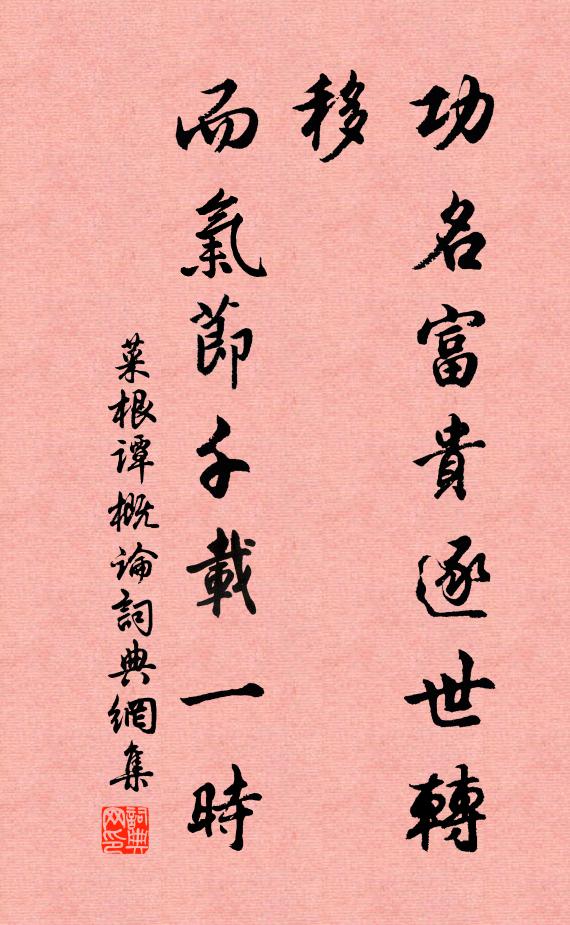 功名富貴逐世轉
移
而氣節千載一時
菜根譚概論詞典網集
詞典
网印